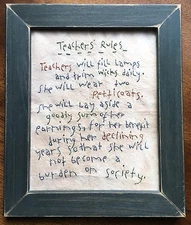 Teachers' Rules
Teachers will fill lamps
and trim wicks daily.
She will wear two
Petticoats.
She will lay aside a
goodly sum of her
earnings, for her benefit
during her declining
years so that she will
not become a
burden on society.